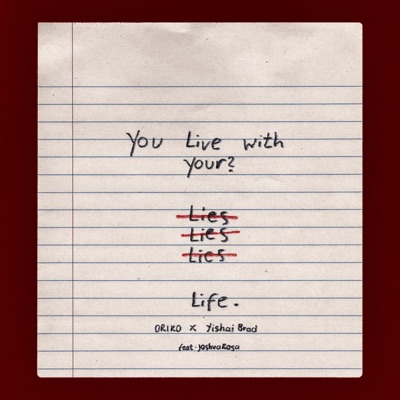 You Live with
Your?
Lies
Lies
Lies
Life.
ORIKO x Yishai Brad
feat. Joshua Rosa